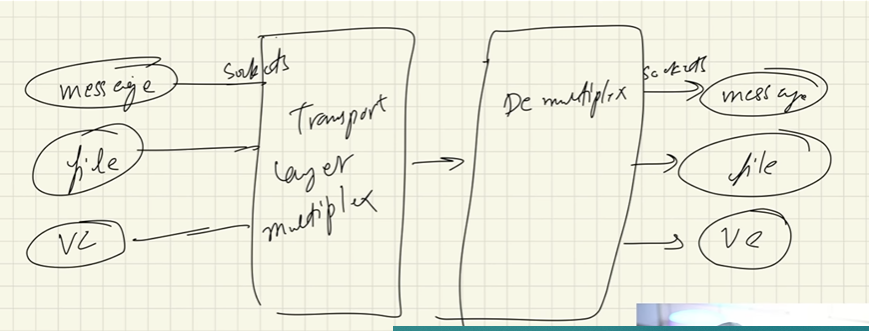 message
file
VC
sockets
Transport
layer
multiplex
Demultiplex
sockets
message
file
VC